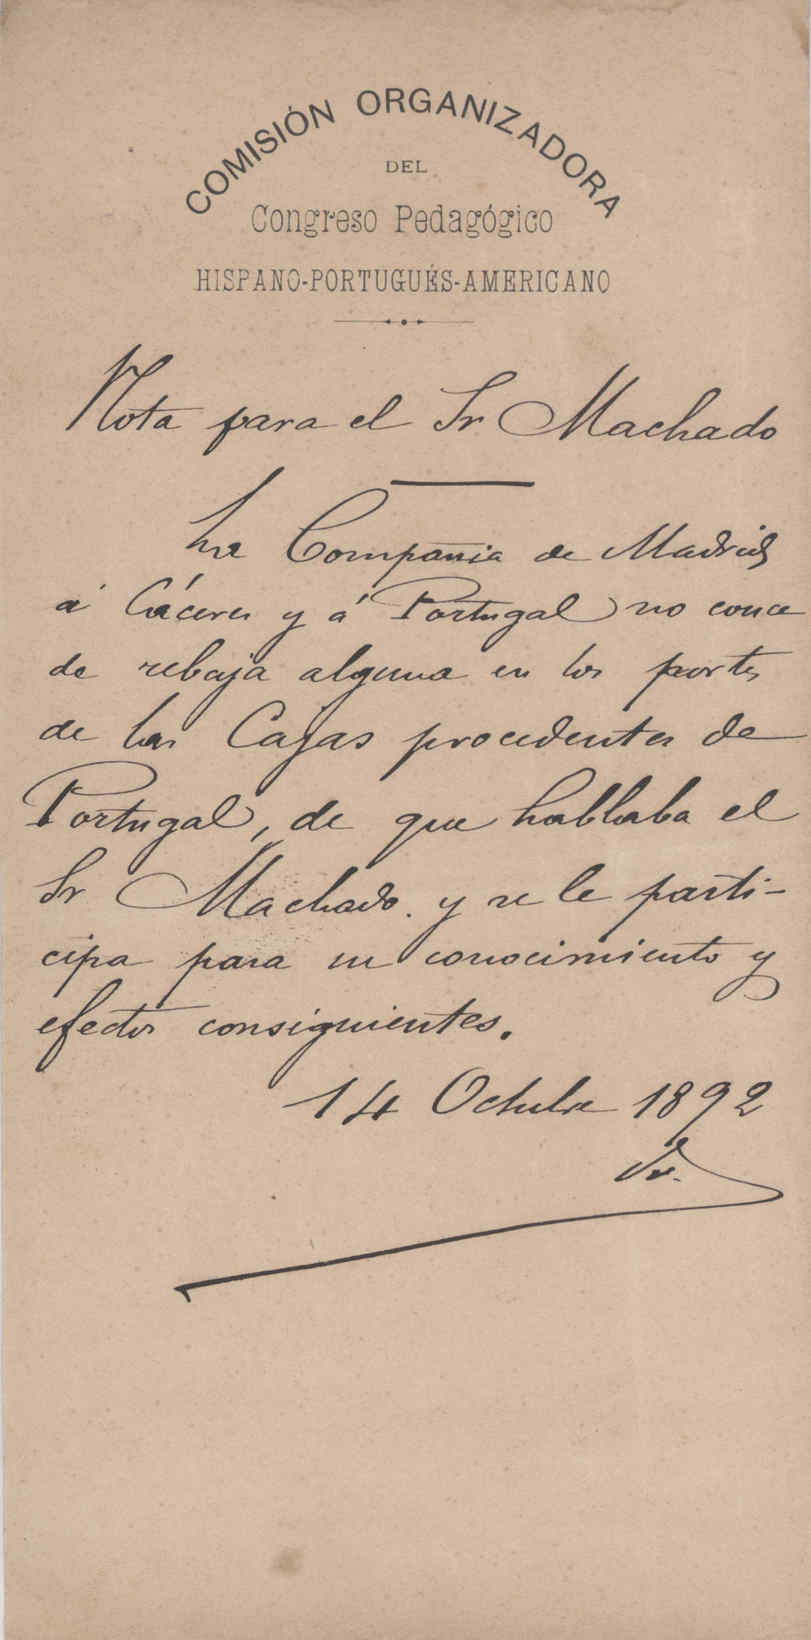 COMISIÓN ORGANIZADORA
DEL
Congreso Pedagógico
HISPANO-PORTUGUÉS-AMERICANO
Nota para el Sr Machado
La Compañia de Madrid
á Cáceres y á Portugal no conce
de rebaja alguna en los portes
de las Cajas procedentes de
Portugal, de que hablaba el
Sr Machado. y se le parti-
cipa para su conocimiento y
efectos consiguientes.
14 Octubre 1892